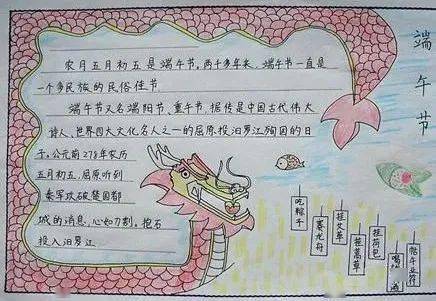 农月五月初五是端午节。两千多年来,端午节一直是
一个多民族的民俗佳节
端午节又名端阳节、重午节,据传是中国古代伟大
诗人、世界四大文化名人之一的屈原投汨罗江殉国的日
子,公元前278年农历
五月初五,屈原听到
秦军攻破楚国都
城的消息,心如刀割,抱石
投入汨罗江
端午节
吃粽子
赛龙舟
挂艾草
挂菖草
挂荷包